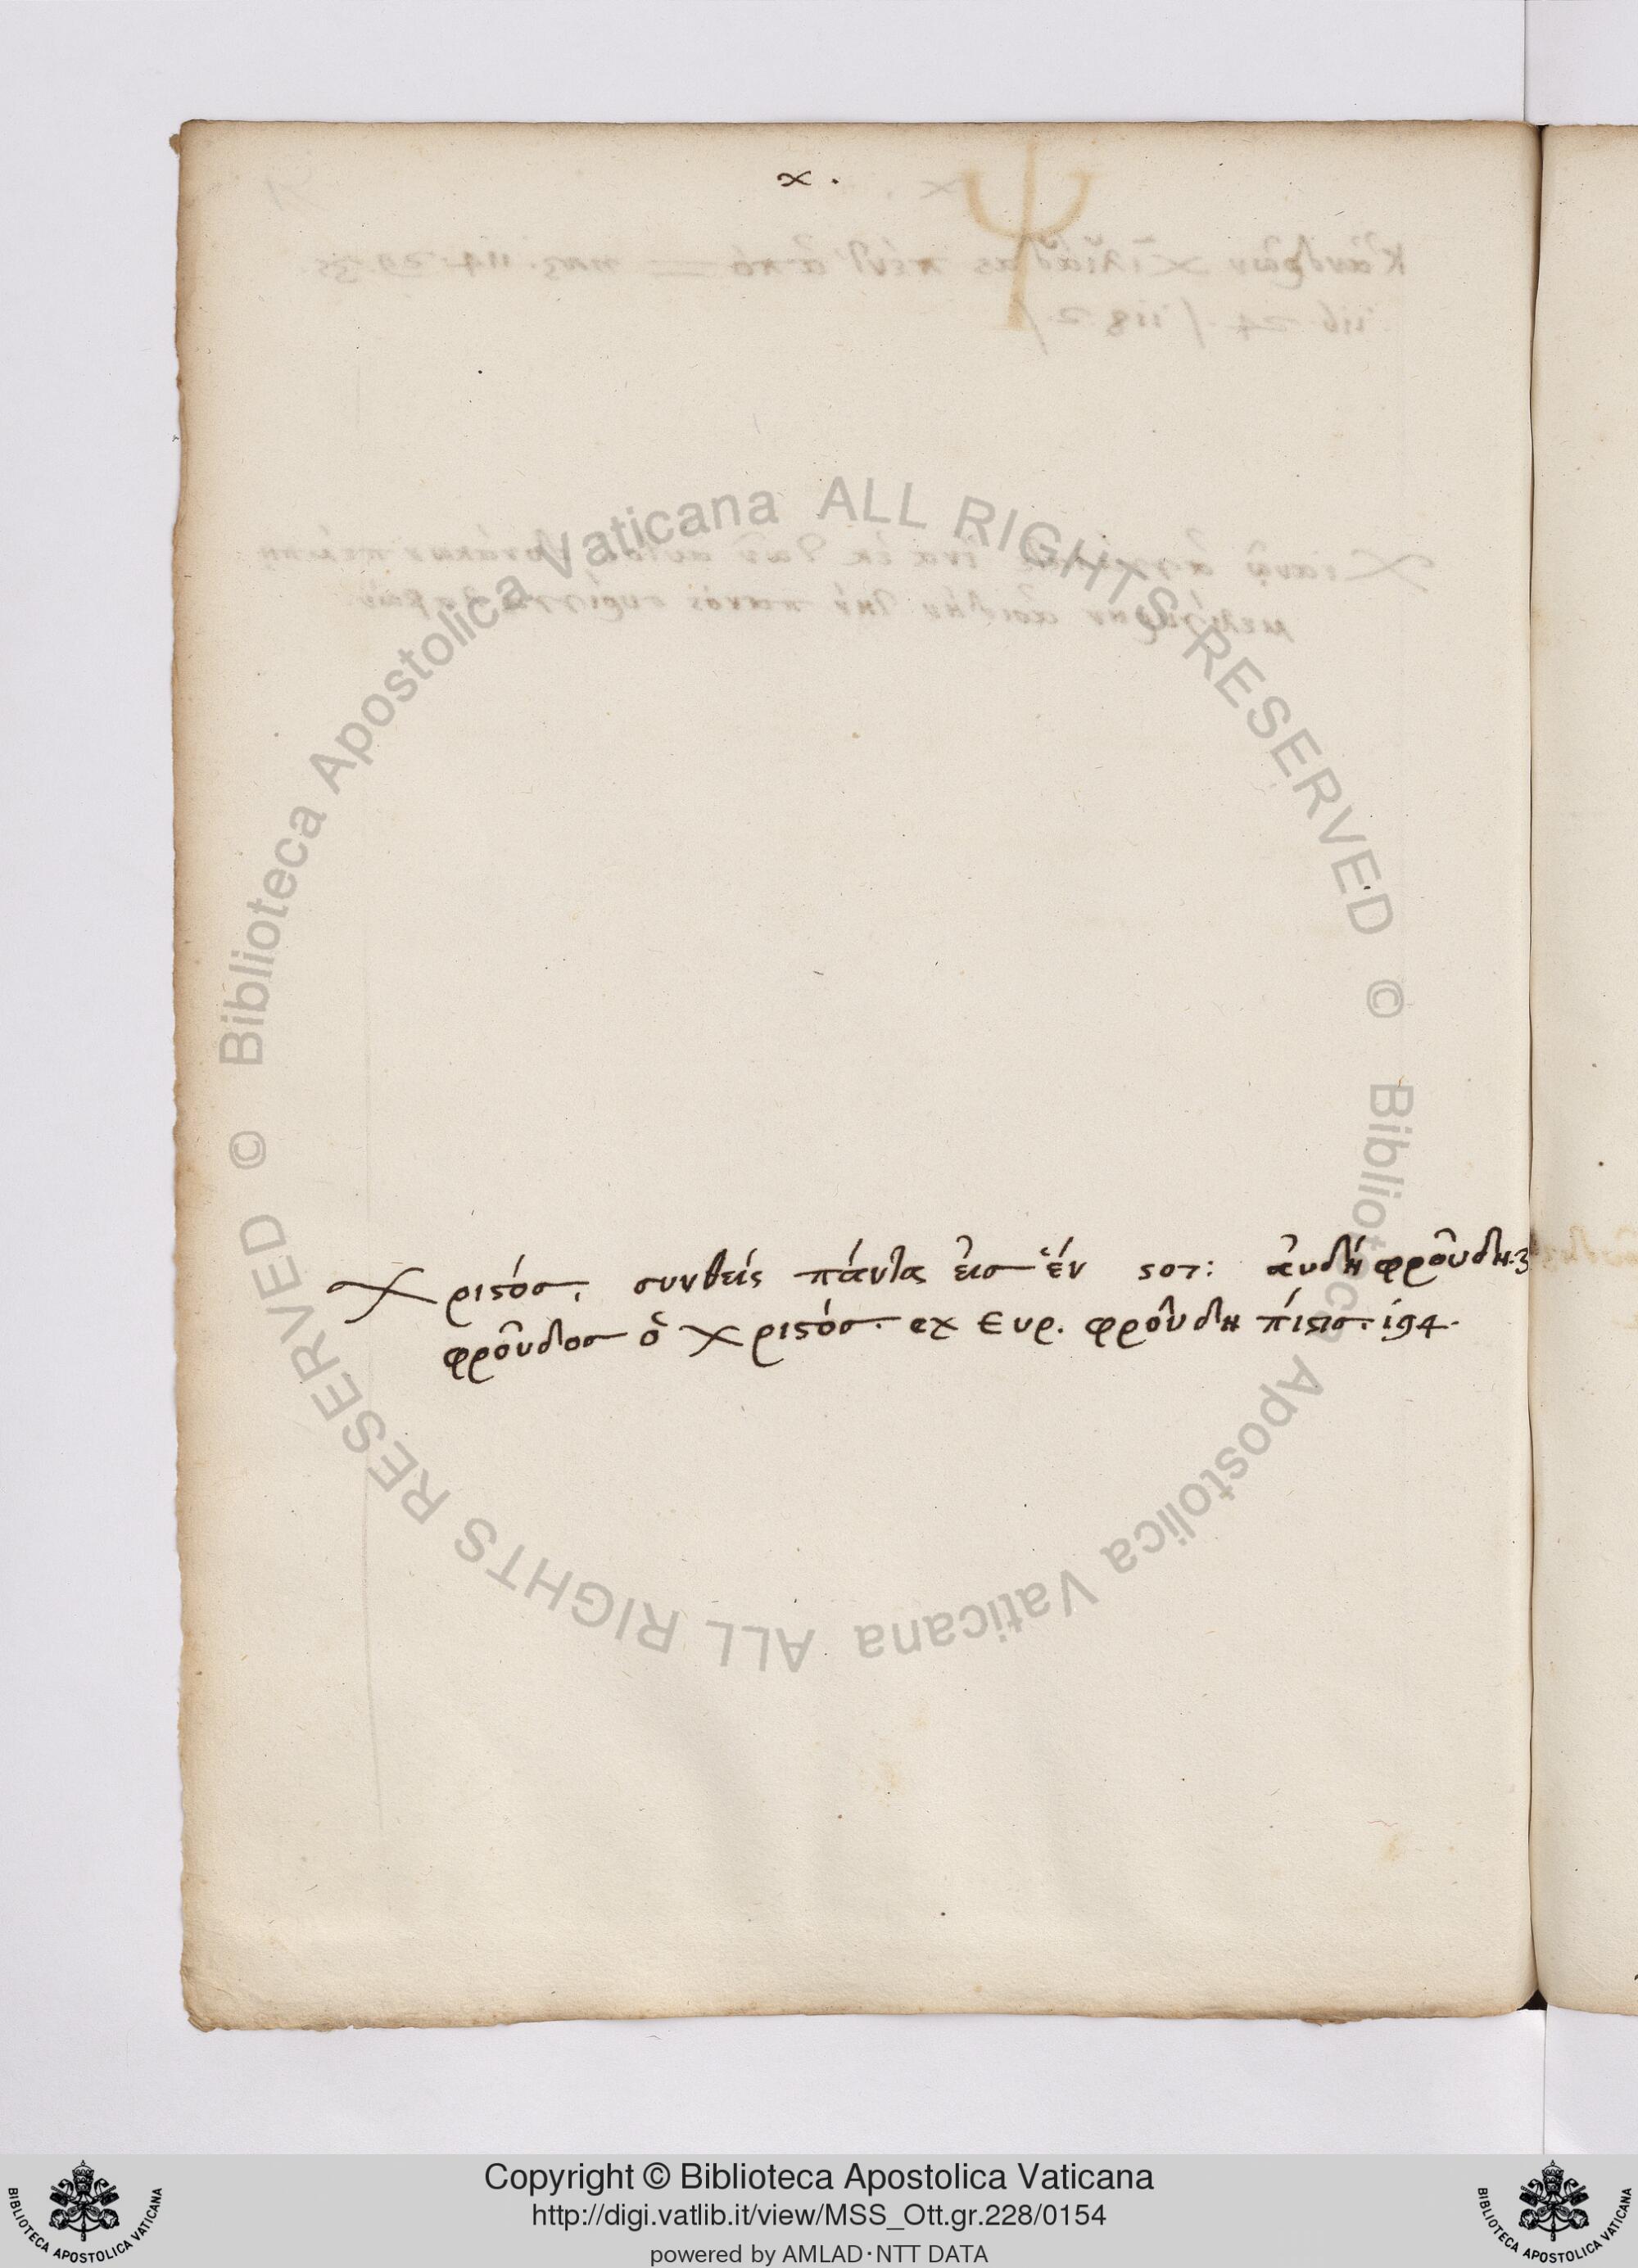 χ.
Χριστός, συνθείς πάντα εἰσ ἑν 507: αὐδή φροῦδη.3
φροῦδοσ ὁ Χριστός. ex Eυρ. φροῦδη πίστισ. 194.
© Biblioteca Apostolica Vaticana ALL RIGHTS RESERVED © Biblioteca Apostolica Vaticana ALL RIGHTS RESERVED
Copyright © Biblioteca Apostolica Vaticana
http://digi.vatlib.it/view/MSS_Ott.gr.228/0154
powered by AMLAD·NTT DATA
BIBLIOTECA APOSTOLICA VATICANA
BIBLIOTECA APOSTOLICA VATICANA